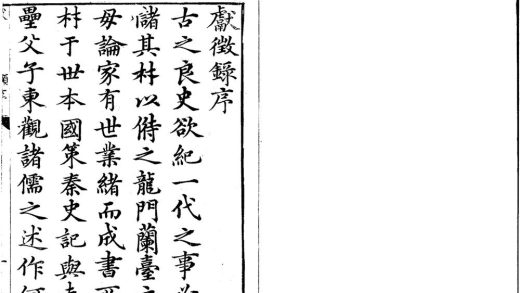 獻徵錄序
古之良史欲紀一代之事
儲其材以俟之龍門蘭臺
毋論家有世業緒而成書
材于世本國策秦史記與
壘父子東觀諸儒之述作